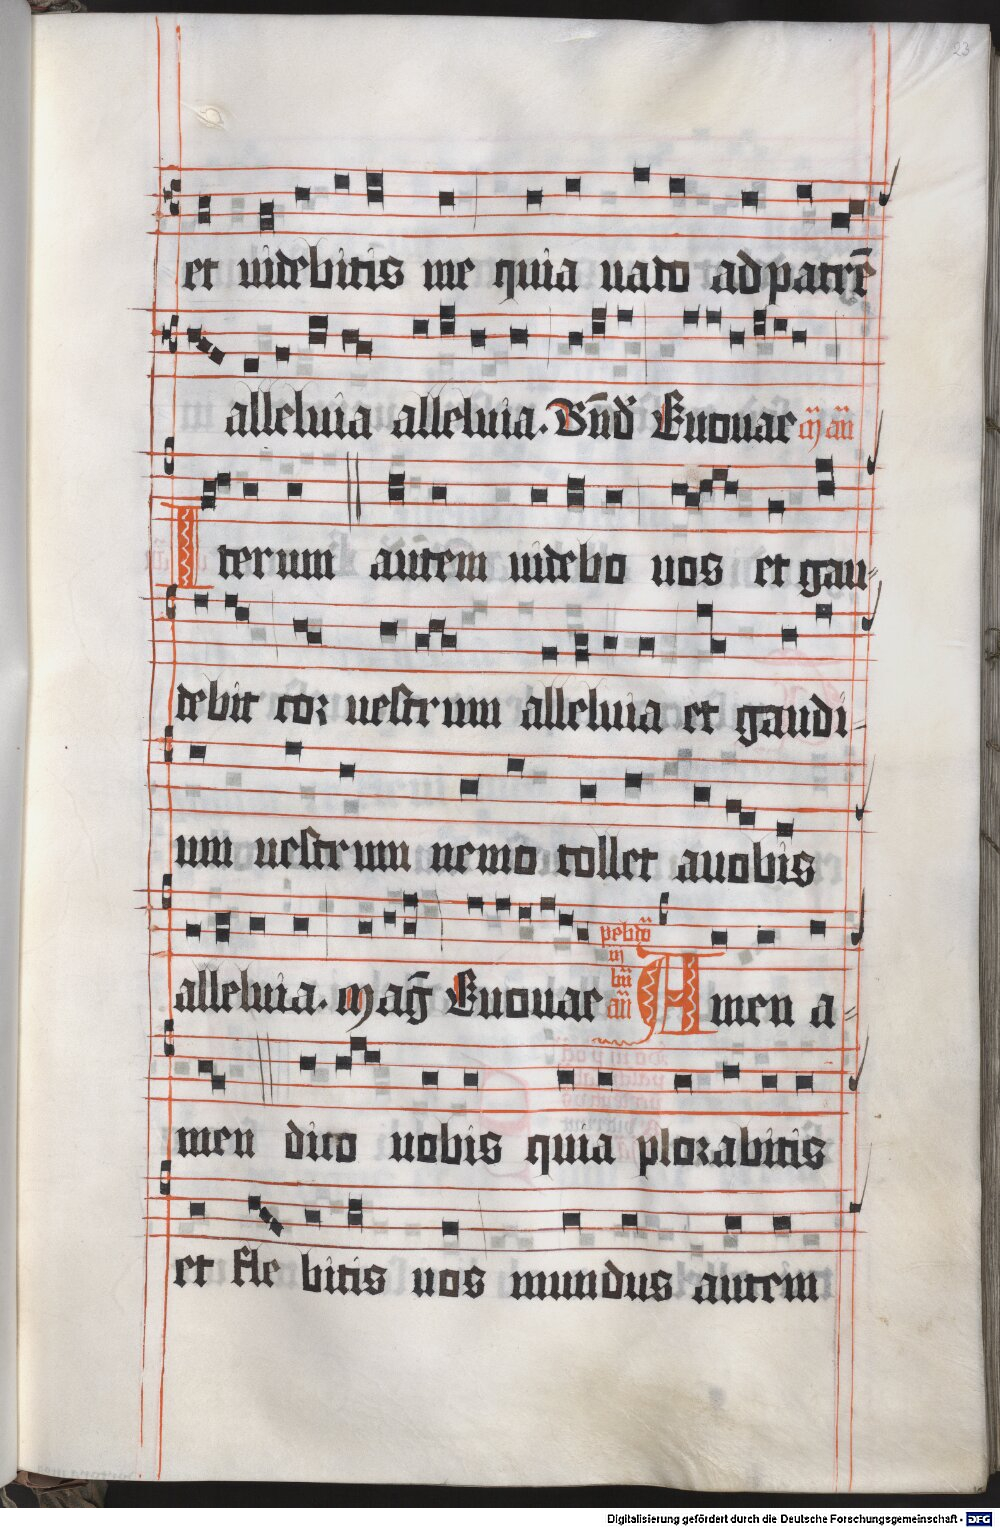 23
et uidebitis me quia uado ad patrē
alleluia alleluia. Bn̄d Euouae m̄ an̄
Iterum autem uidebo uos et gau
debit cor uestrum alleluia et gaudi
um uestrum nemo tollet a uobis
alleluia. Mag̅ Euouae Amen a
men dico uobis quia plorabitis
et fle bitis uos mundus autem
Digitalisierung gefördert durch die Deutsche Forschungsgemeinschaft - DFG